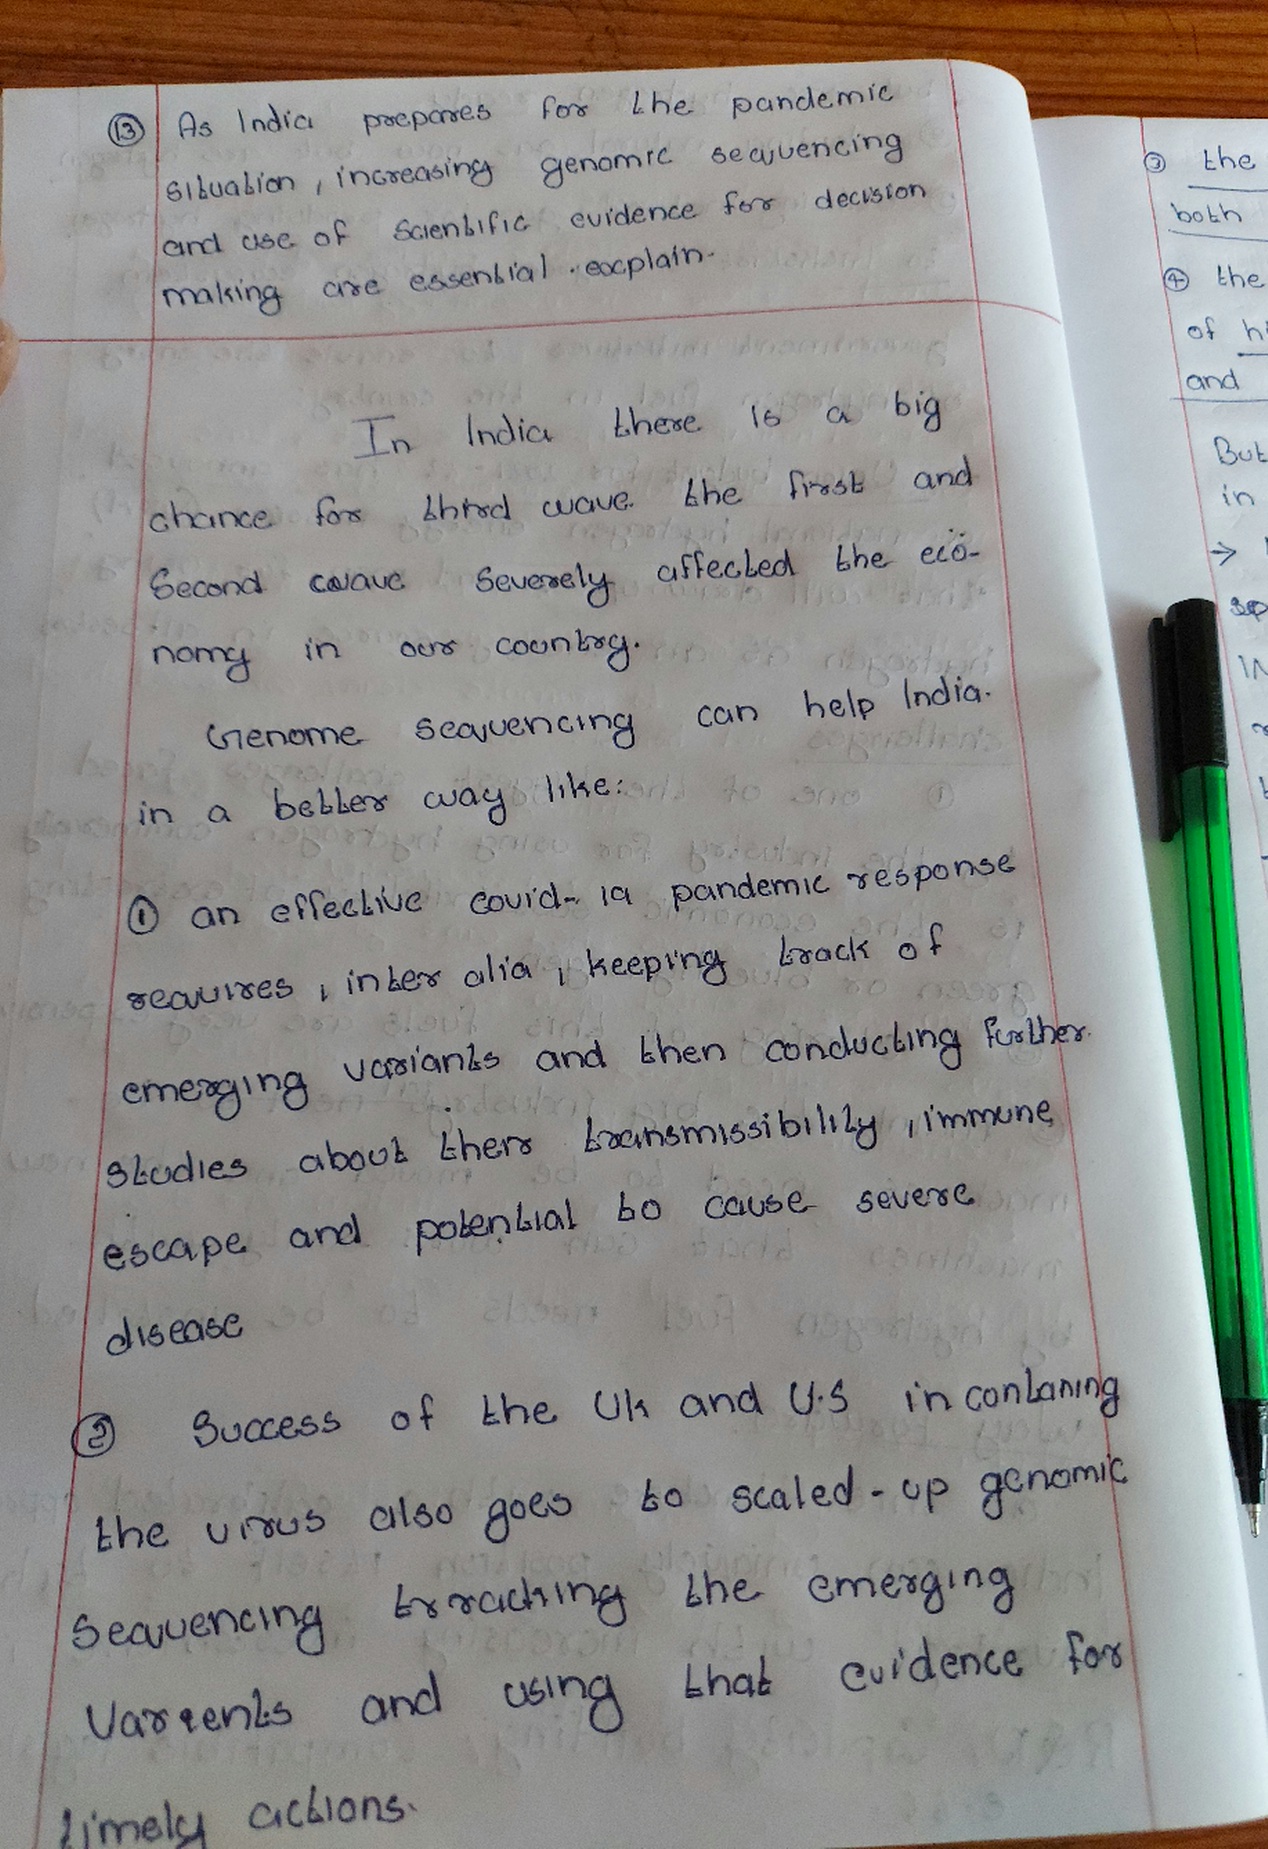 ⑬ As India prepares for the pandemic
situation, increasing genomic sequencing
and use of scientific evidence for decision
making are essential. explain.
In India there is a big
chance for third wave the first and
Second wave severely affected the eco-
nomy in our country.
Genome sequencing can help India.
in a better way like:
① an effective covid-19 pandemic response
requires, inter alia, keeping track of
emerging variants and then conducting further
studies about their transmissibility, immune
escape and potential to cause severe
disease
② Success of the UK and U.S in containing
the virus also goes to scaled-up genomic
sequencing trracking the emerging
varients and using that evidence for
timely actions.
③ the
both
④ the
of
and
But
in
→